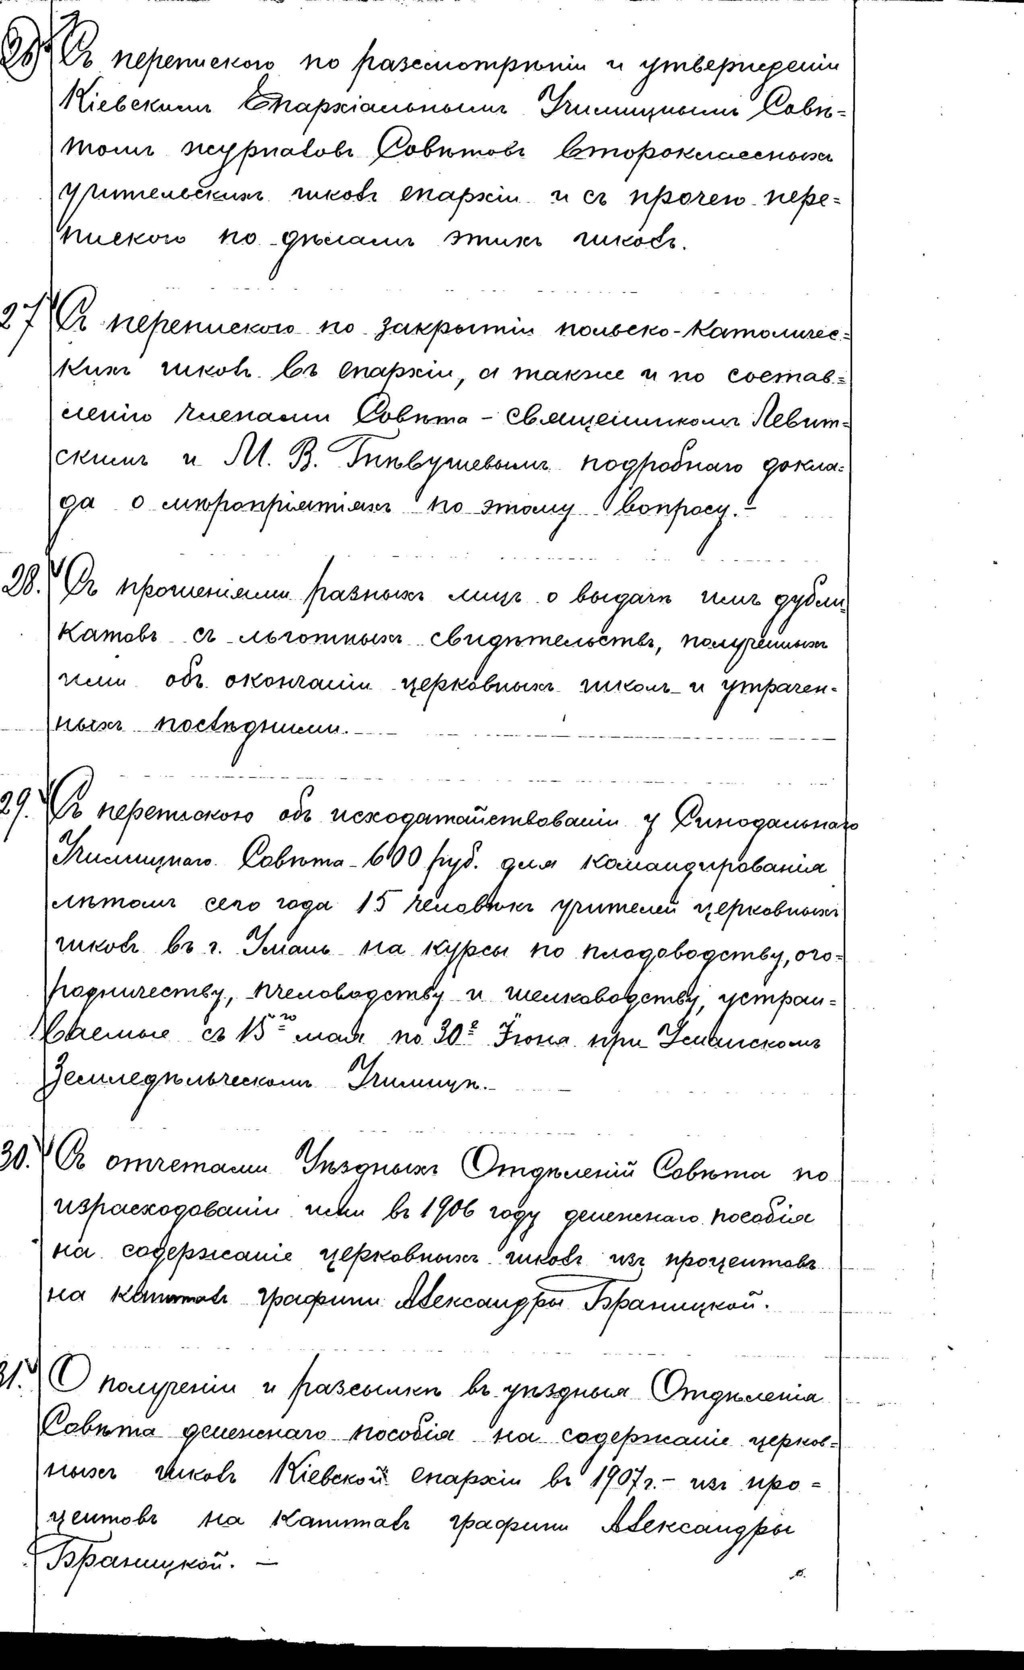 26. Съ перепискою по разсмотрѣніи и утвержденіи
Кіевскимъ Епархіальнымъ Училищнымъ Совѣ=
томъ журналовъ Совѣтовъ Второклассныхъ
учительскихъ школъ епархіи и съ прочею пере=
пискою по дѣламъ этихъ школъ.
27 Съ перепискою по закрытіи польско-католичес=
кихъ школъ въ епархіи, а также и по состав=
ленію членами Совѣта - священникомъ Левит=
скимъ и М. В. Гнѣвушевымъ подробнаго докла=
да о мѣропріятіяхъ по этому вопросу. -
28. Съ прошеніями разныхъ лицъ о выдачѣ имъ дубли
катовъ съ льготныхъ свидѣтельствъ, полученныхъ
ими объ окончаніи церковныхъ школъ и утрачен-
ныхъ послѣдними.
29. Съ перепискою объ исходатайствованіи у Синодальнаго
Училищнаго Совѣта 600 руб. для командированія
лѣтомъ сего года 15 человѣкъ учителей церковныхъ
школъ въ г. Умань на курсы по плодоводству, ого=
родничеству, пчеловодству и шелководству, устраи=
ваемые съ 15го мая по 30е Іюня при Уманскомъ
Земледѣльческомъ Училищѣ. -
30. Съ отчетами Уѣздныхъ Отдѣленій Совѣта по
израсходованіи ими въ 1906 году денежнаго пособія
на содержаніе церковныхъ школъ изъ процентовъ
на капиталъ графини Александры Браницкой.
31. О полученіи и разсылкѣ въ уѣздныя Отдѣленія
Совѣта денежнаго пособія на содержаніе церков=
ныхъ школъ Кіевской епархіи въ 1907 г. - изъ про=
центовъ на капиталъ графини Александры
Браницкой. -